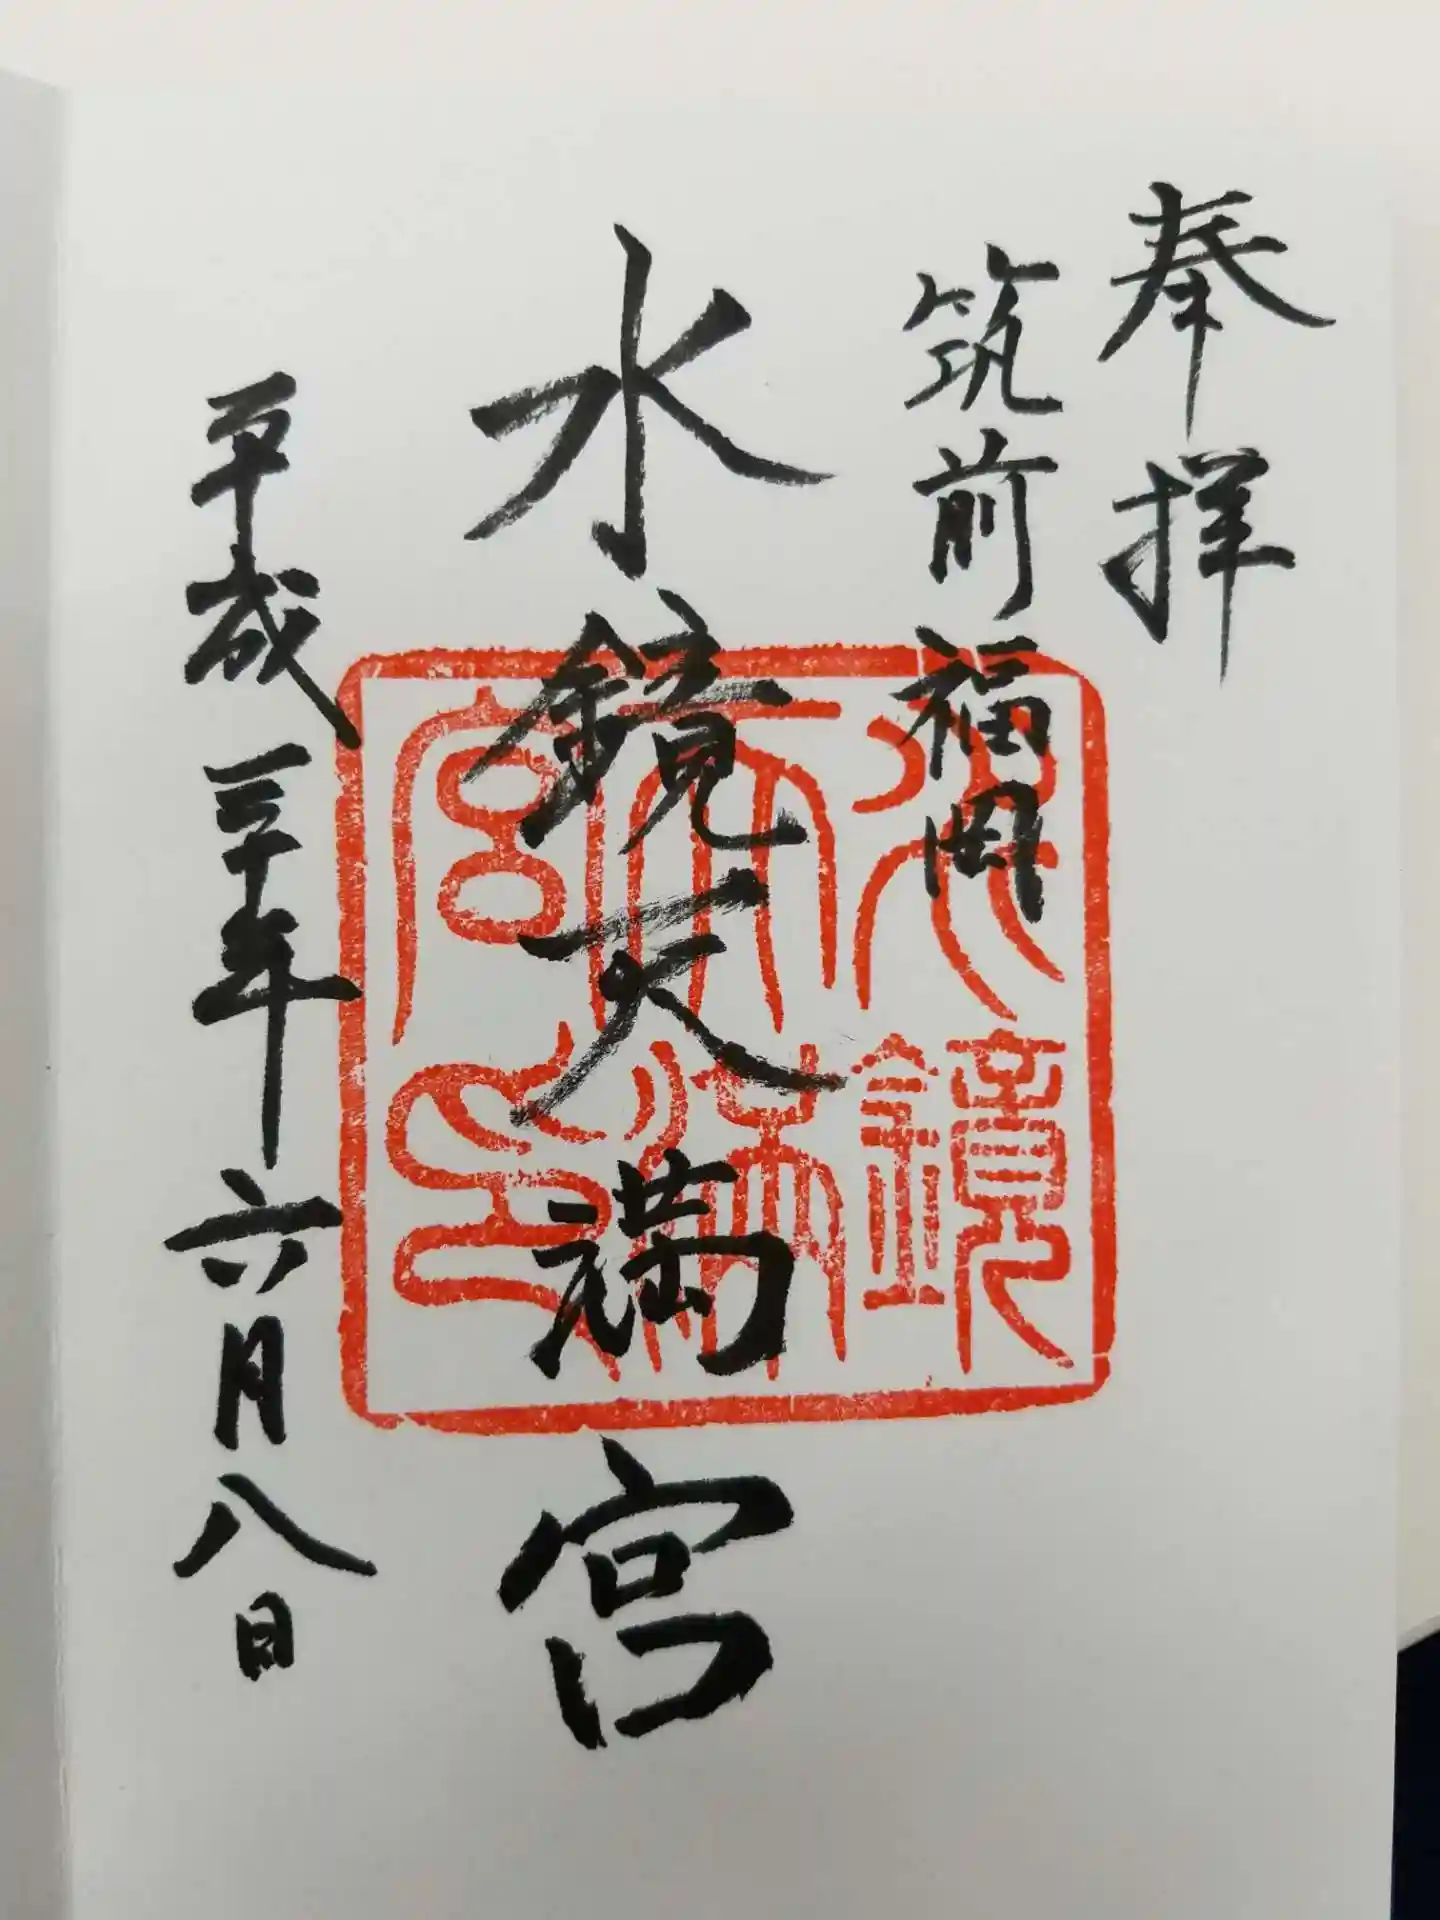 奉拝
筑前福岡
水鏡天満宮
平成三十年六月八日
水鏡
天満
宮印